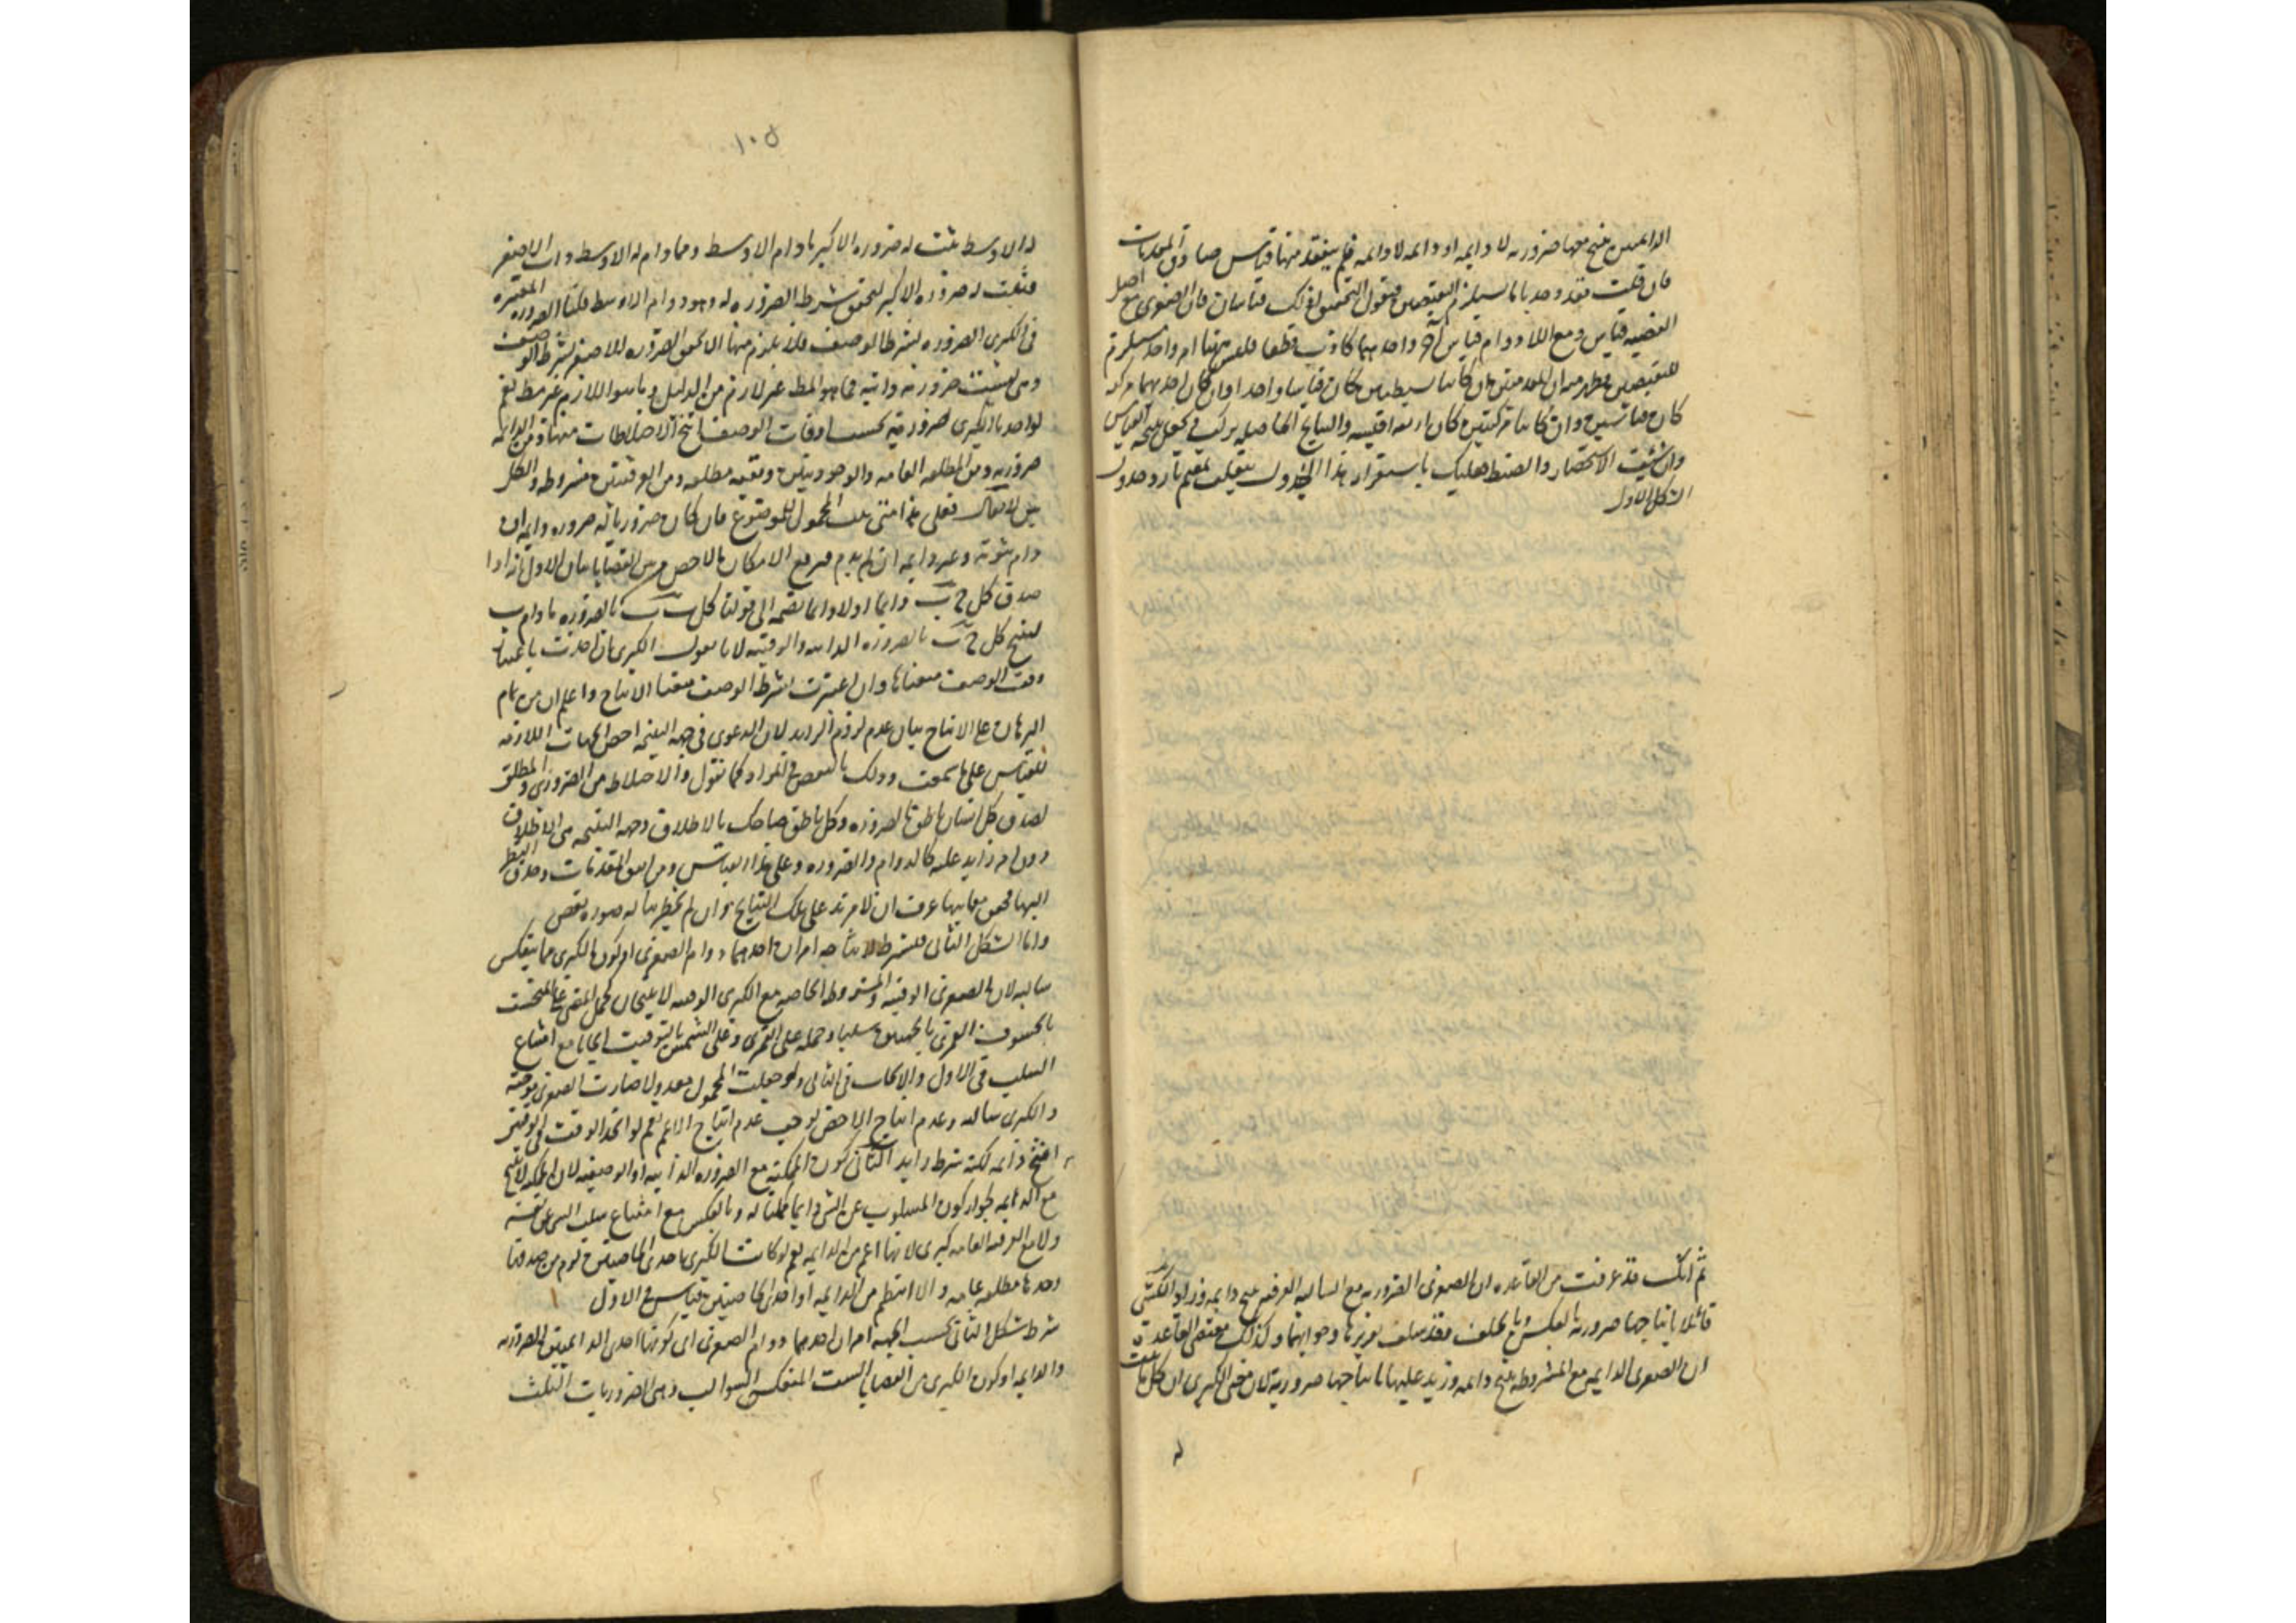 الدايمتين ينتج معها ضروريه لا دايمه او دايمه لا دايمه فلم ينعقد منها قياس صادق المقدمات
فان قلت فقد وجد ما يستلزم النقيضين فنقول التحقيق ان ذلك قياسان فان الصغرى مع اصل
القضيه قياس ومع اللادوام قياس آخر واحدهما كاذب قطعا فليس ههنا امر واحد يستلزم
النقيضين فظهر من ان المقدمتين ان كانتا بسيطتين كان قياسا واحدا وان كان احديهما مركبه
كان قياسين وان كانتا مركبتين كان اربعه اقيسه والنتايج الحاصله يركب ويجعل نتيجه القياس
وان شئت الاستحضار والضبط فعليك باستقراء هذا الجدول وجدول
الشكل الاول
ثم انك قد عرفت من القاعده ان الصغرى الضروريه مع السالبه العرفيه ينتج دايمه وزاد الكشى
قائلا بانتاجها ضروريه بالعكس وبالخلف وقد سلف تقريرها وجوابهما وكذلك مقتضى القاعدة
ان الصغرى الدايمه مع المشروطه ينتج دايمه وزيد عليها بانتاجها ضرورية لان معنى الكبرى ان كل ما ثبت
له
١٠٥
له الاوسط يثبت له ضروره الاكبر ما دام الاوسط ومما دام له الاوسط ذات الاصغر
فيثبت له ضروره الاكبر لتحقق شرط الضروره له وهو دوام الاوسط قلنا الضروره المعتبره
فى الكبرى الضروره بشرط الوصف فلا يلزم منها الا تحقق الضروره للاصغر بشرط الوصف
وهى ليست ضروريه ذاتيه فما هو المط غير لازم من الدليل وما هو اللازم غير مط نعم
لو اخذنا الكبرى ضروريه بحسب اوقات الوصف انتج الاختلاطات منها ومن الدايمه
ضروريه ومن المطلقه العامه والوجوديتين وقتيه مطلقه ومن الوقتيتين مشروطه والكل
بين لانه ح فعلى هذا متى المحمول للموضوع فان كان ضروريا له ضروره ودايمه ان
دام ثبوته وغير دايمه ان لم يدم فيرجع الامكان بالاخص من القضايا بيان الاول انه اذا
صدق كل ج ب دايما اولا دايما نضمه الى قولنا كل ب ا بالضروره ما دام ب
لينتج كل ج ا بالضروره الذاتيه والوقتيه لانا نقول الكبرى ان اخذت باعتبار
وقت الوصف منعناها وان اعتبرت بشرط الوصف منعنا الانتاج واعلم ان من تمام
البرهان على الانتاج بيان عدم لزوم الزايد لان الدعوى فى جهه النتيجه اخص الجهات اللازمه
للقياس على ما سمعت وذلك بالنقض فى المواد كما نقول فى الاختلاط من الضرورى والمطلق
لصدق كل انسان ناطق بالضروره وكل ناطق ضاحك بالاطلاق وجهه النتيجه هى الاطلاق
دون امر زايد عليه كالدوام والضروره وعلى هذا القياس ومن اتقن المقدمات وحدق النظر
اليها فحقق معانيها عرف ان لا مزيد على تلك النتايج وان لم يخطر بباله صوره نقض
واما الشكل الثانى فشرط انتاجه امران احدهما دوام الصغرى او كون الكبرى مما ينعكس
سالبه لان الصغرى الوقتيه والمشروطه الخاصه مع الكبرى الوقتيه لا ينتجان كحمل المضى على المنخسف
بالخسوف القمرى سلبا وحمله على القمر وعلى الشمس بالتوقيت ايجابا مع امتناع
السلب فى الاول والايجاب فى الثانى ولو جعلت المحمول معدولا صارت الصغرى موجبة
والكبرى سالبه وعدم انتاج الاخص يوجب عدم انتاج الاعم نعم لو اتحد الوقت فى الوقتيتين
انتج دايمه لكنه شرط زايد الثانى كون الممكنه مع الضروره الذاتيه او الوصفيه لان الممكنه لا ينتج
مع الدايمه لجواز كون المسلوب عن الشى دايما ممكنا له وبالعكس مع امتناع سلب الشى عن نفسه
ولا مع العرفيه العامه كبرى لانها اعم من الدايمه نعم لو كانت الكبرى احدى الخاصيتين لزم من صدقها
وحدها مطلقه عامه والا انتظم من الدايمه او احدى الخاصيتين قياس فى الاول
شرط شكل الثانى بحسب الجهه امران احدهما دوام الصغرى اى كونها احدى الدايمتين الضروريه
والدايمه او كون الكبرى من القضايا الست المنعكس السوالب وهى الضروريات الثلث